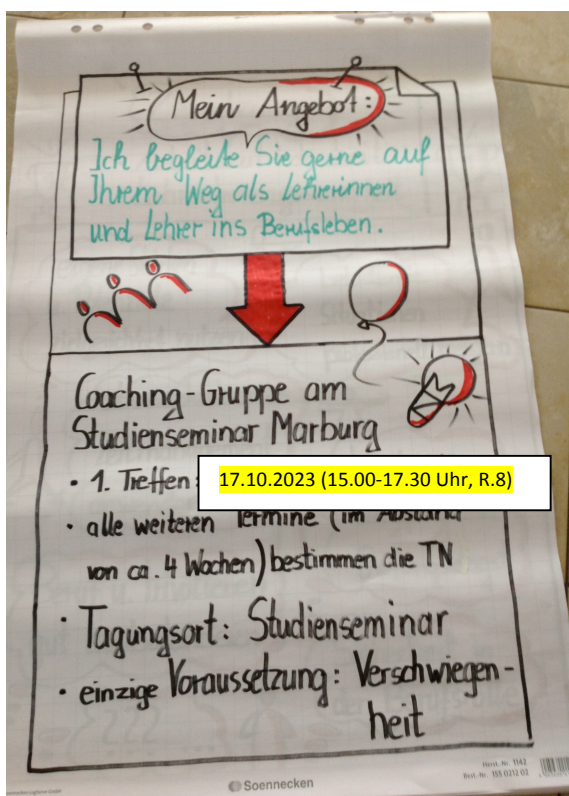 Mein Angebot:
Ich begleite Sie gerne auf
Ihrem Weg als Lehrerinnen
und Lehrer ins Berufsleben.
Coaching-Gruppe am
Studienseminar Marburg
• 1. Treffen: 17.10.2023 (15.00-17.30 Uhr, R.8)
• alle weiteren Termine (im Abstand
von ca. 4 Wochen) bestimmen die TN
• Tagungsort: Studienseminar
• einzige Voraussetzung: Verschwiegen-
heit
Soennecken
Best. Nr. 153 0212 02